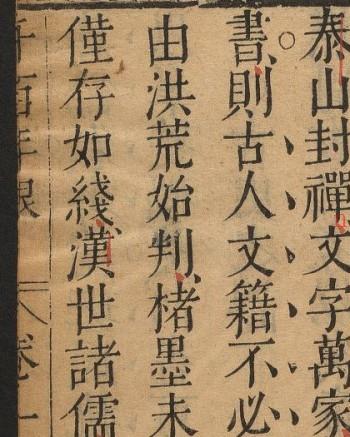 泰山封禪文字萬家
書則古人文籍不必
由洪荒始判楮墨未
僅存如綫漢世諸儒